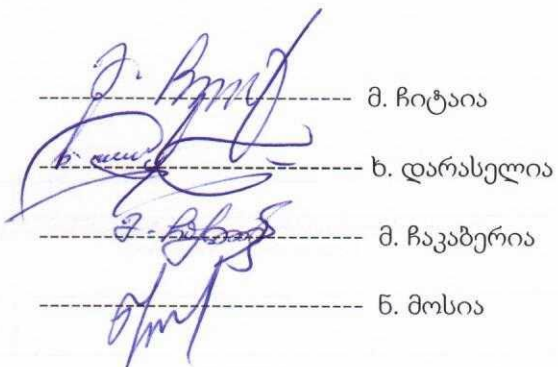 მ. ჩიტაია
ხ. დარასელია
მ. ჩაკაბერია
ნ. მოსია